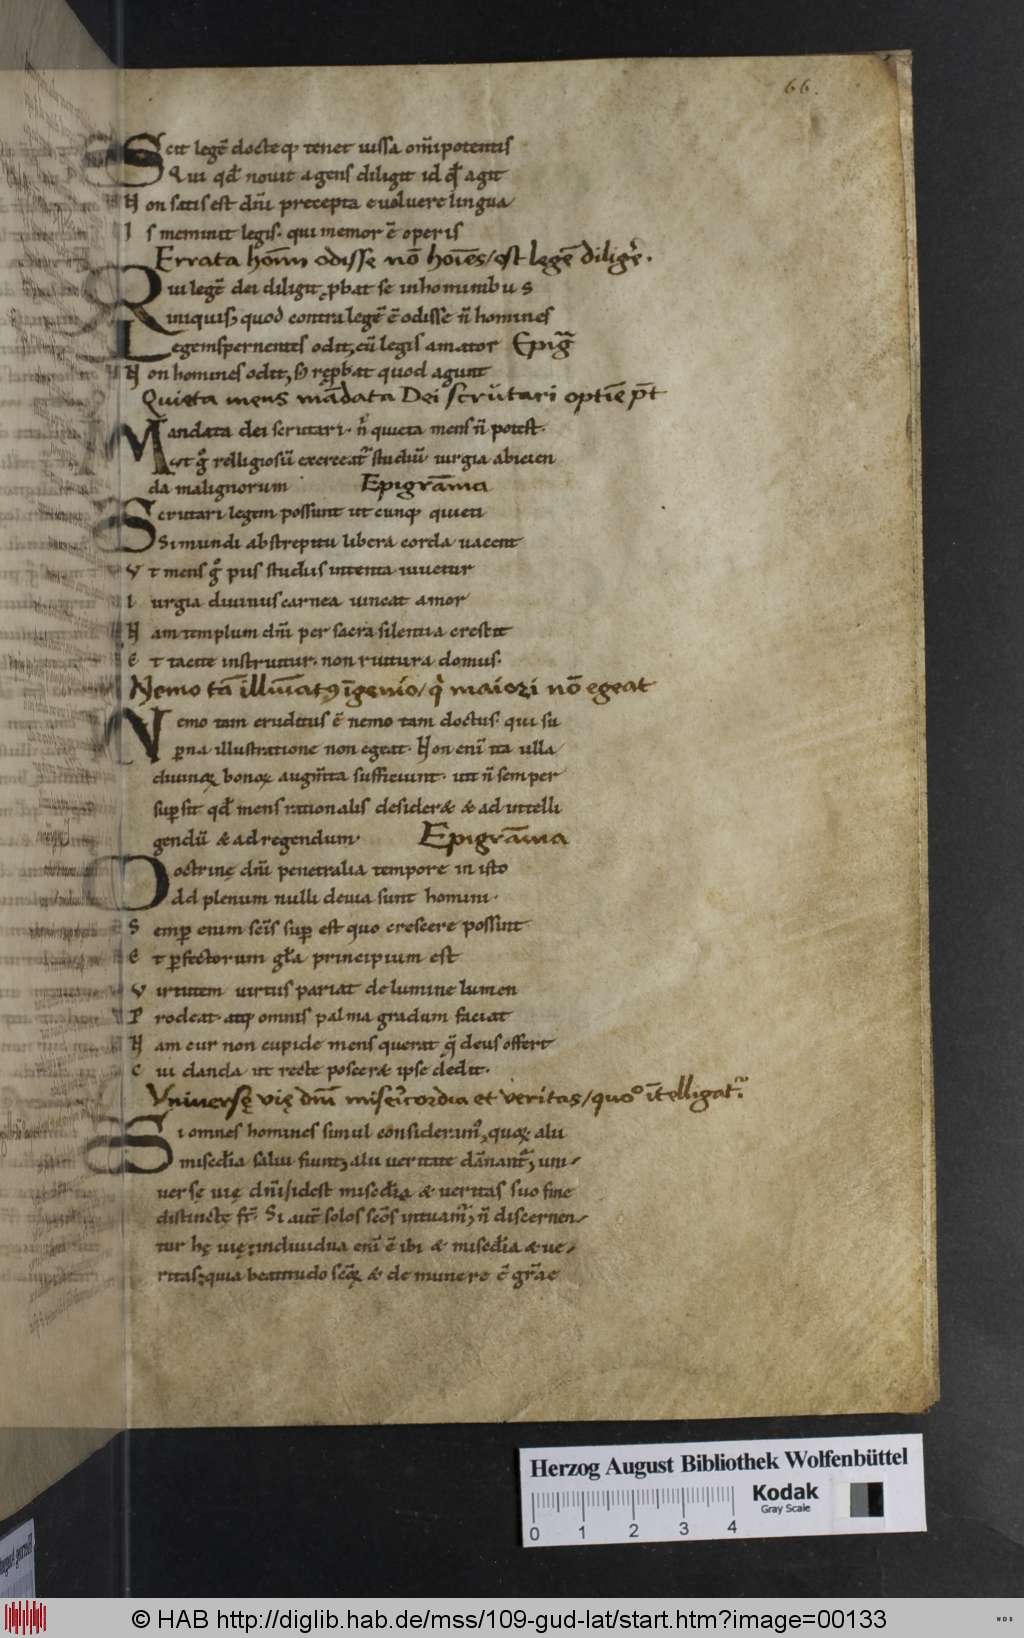 66.
Scit legē docteq; tenet iussa om̄ipotentis
Qui qđ nouit agens diligit id qđ agit
Non satis est dn̄i precepta euoluere lingua
Is meminit legis. qui memor ē operis
Errata hoīm odisse nō hoīes / est legē diligere.
Qui legē dei diligit, ꝓbat se in hominibus
iniquis, quod contra legē ē odisse n̄ homines
Legem spernentes odit, cū legis amator Epigr̄a
Non homines odit, s; reꝓbat quod agunt
Quieta mens mādata Dei scrutari optīe p̄t
Mandata dei scrutari. n̄ quieta mens n̄ potest.
ut g̊ relligiosū exerceat᷑ studiū. iurgia abicien
da malignorum Epigrāma
Scrutari legem possunt utcunq; quieti
Si mundi abstrepitu libera corda uacent
Vt mens g̊ pus studiis intenta iuuetur
Iurgia diuinus carnea uincat amor
Nam templum dn̄i per sacra silentia crescit
Et tacite instruitur. non ruitura domus.
Nemo tā illūinatꝰ īgenio / qͥ maiori nō egeat
Nemo tam eruditus ē nemo tam doctus. qui su
ꝑna illustratione non egeat. Non enī ita ulla
diuinoꝝ bonoꝝ augm̄ta sufficiunt. ut n̄ semper
suꝑsit qđ mens rationalis desideret & ad intelli
gendū & ad regendum. Epigrāma
Doctrinę dn̄i penetralia tempore in isto
Add plenum nulli deuia sunt homini.
Semꝑ enim sc̄is suꝑ est quo crescere possint
Et ꝑfectorum gl̄a principium est
Virtutem uirtus pariat de lumine lumen
Prodeat. atq; omnis palma gradum faciat
Nam cur non cupide mens querat q̄ deus offert
Cui danda ut recte posceret ipse dedit.
Vniuersę vię dn̄i misericordia et veritas / quoº ītelligat᷑.
Si omnes homines simul considerem᷒, quoꝝ alii
miscd̄ia salui fiunt, alii ueritate dānant᷑, uni-
uerse uię dn̄i / idest miscd̄ia & ueritas suo fine
distinctę st̄. Si aut̄ solos sc̄os intuam᷒, n̄ discernen-
tur hę uię; indiuidua enī ē ibi & miscd̄ia & ue-
ritas; quia beatitudo sc̄oꝝ & de munere ē gr̄ae
Herzog August Bibliothek Wolfenbüttel
Kodak
Gray Scale
0 1 2 3 4
© HAB http://diglib.hab.de/mss/109-gud-lat/start.htm?image=00133
WDB